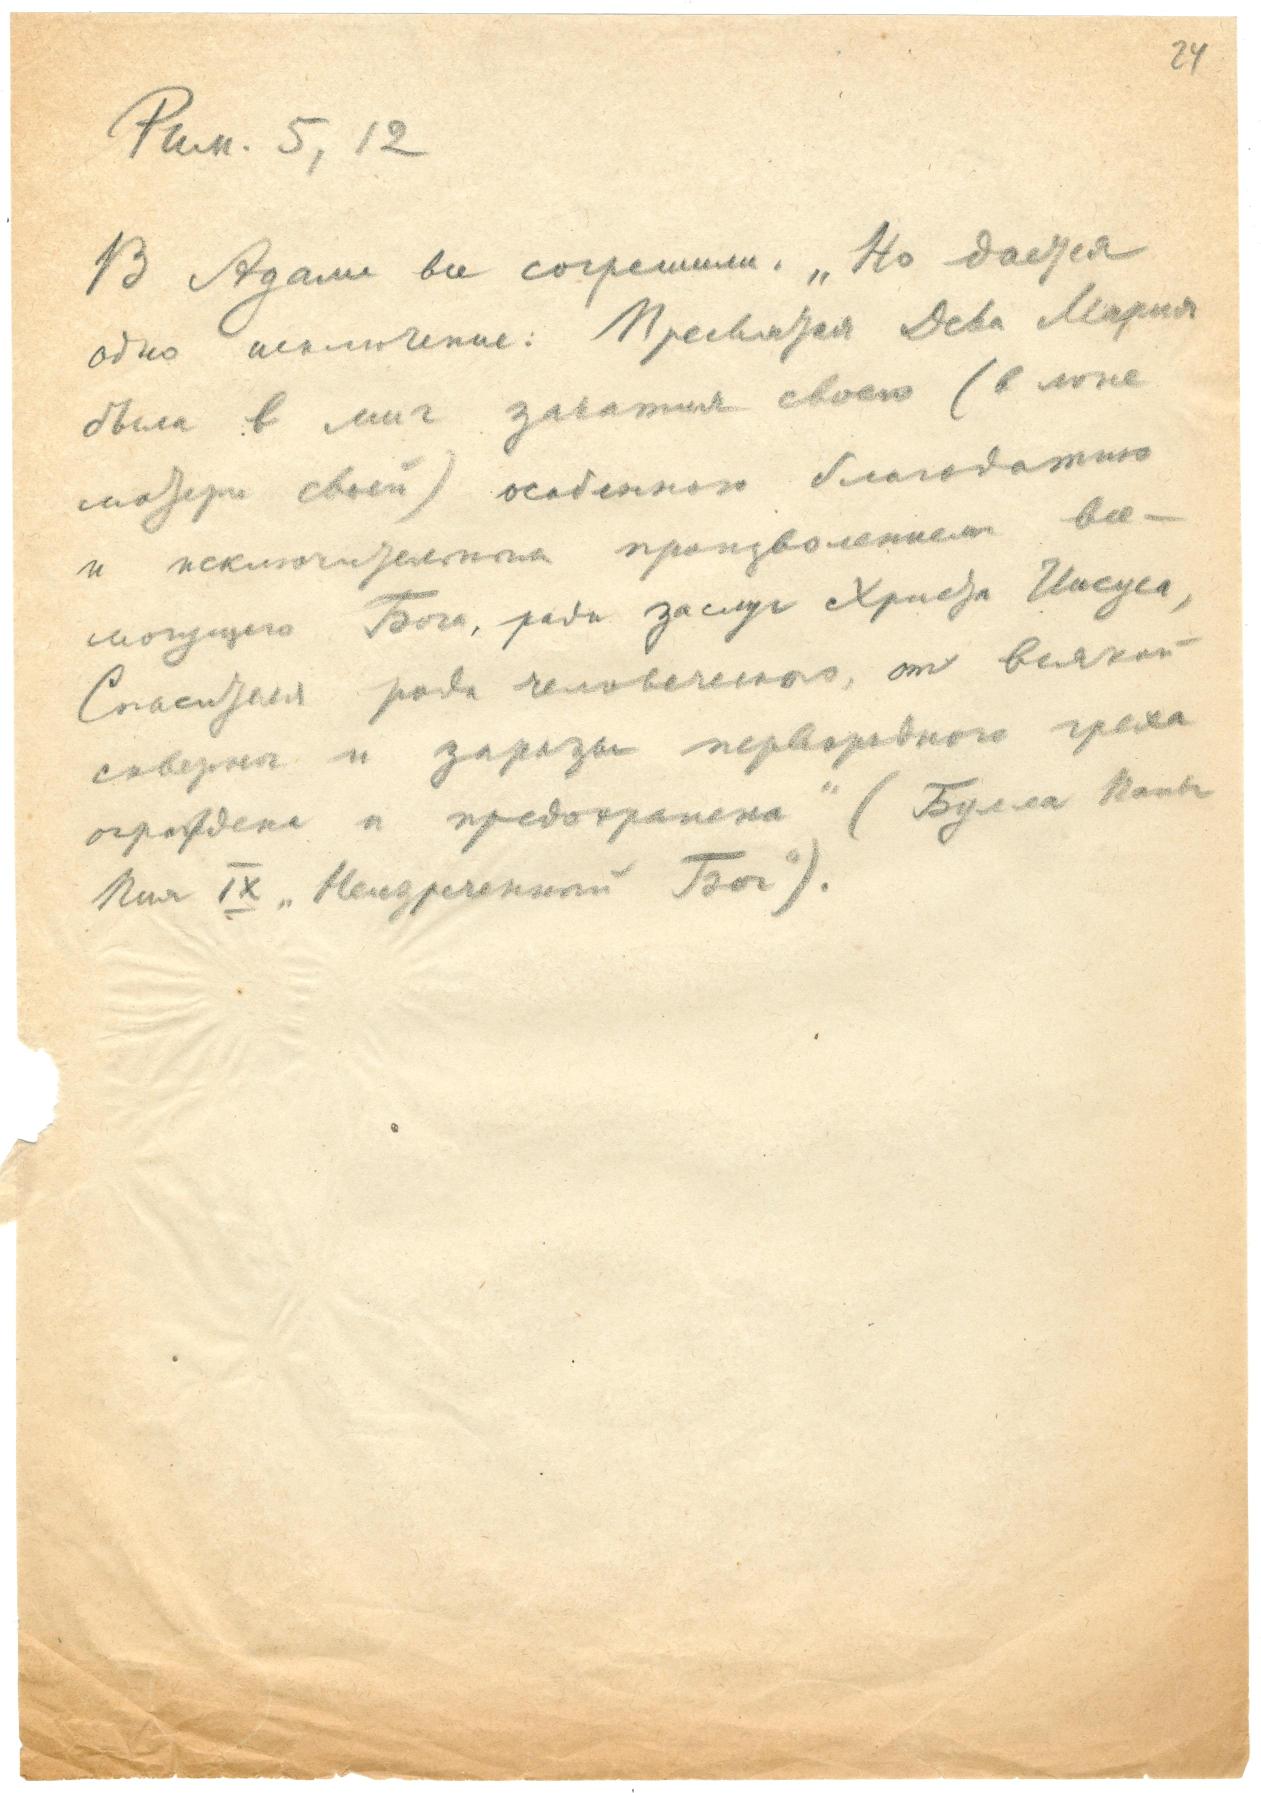 24
Рим. 5, 12
В Адаме все согрешили. „Но дается
одно исключение: Пресвятая Дева Мария
была в миг зачатия своего (в лоне
матери своей) особенною благодатию
и исключительным произволением все-
могущего Бога, ради заслуг Христа Иисуса,
Спасителя рода человеческого, от всякой
скверны и заразы первородного греха
ограждена и предохранена“ (Булла Папы
Пия IX „Неизреченный Бог“).